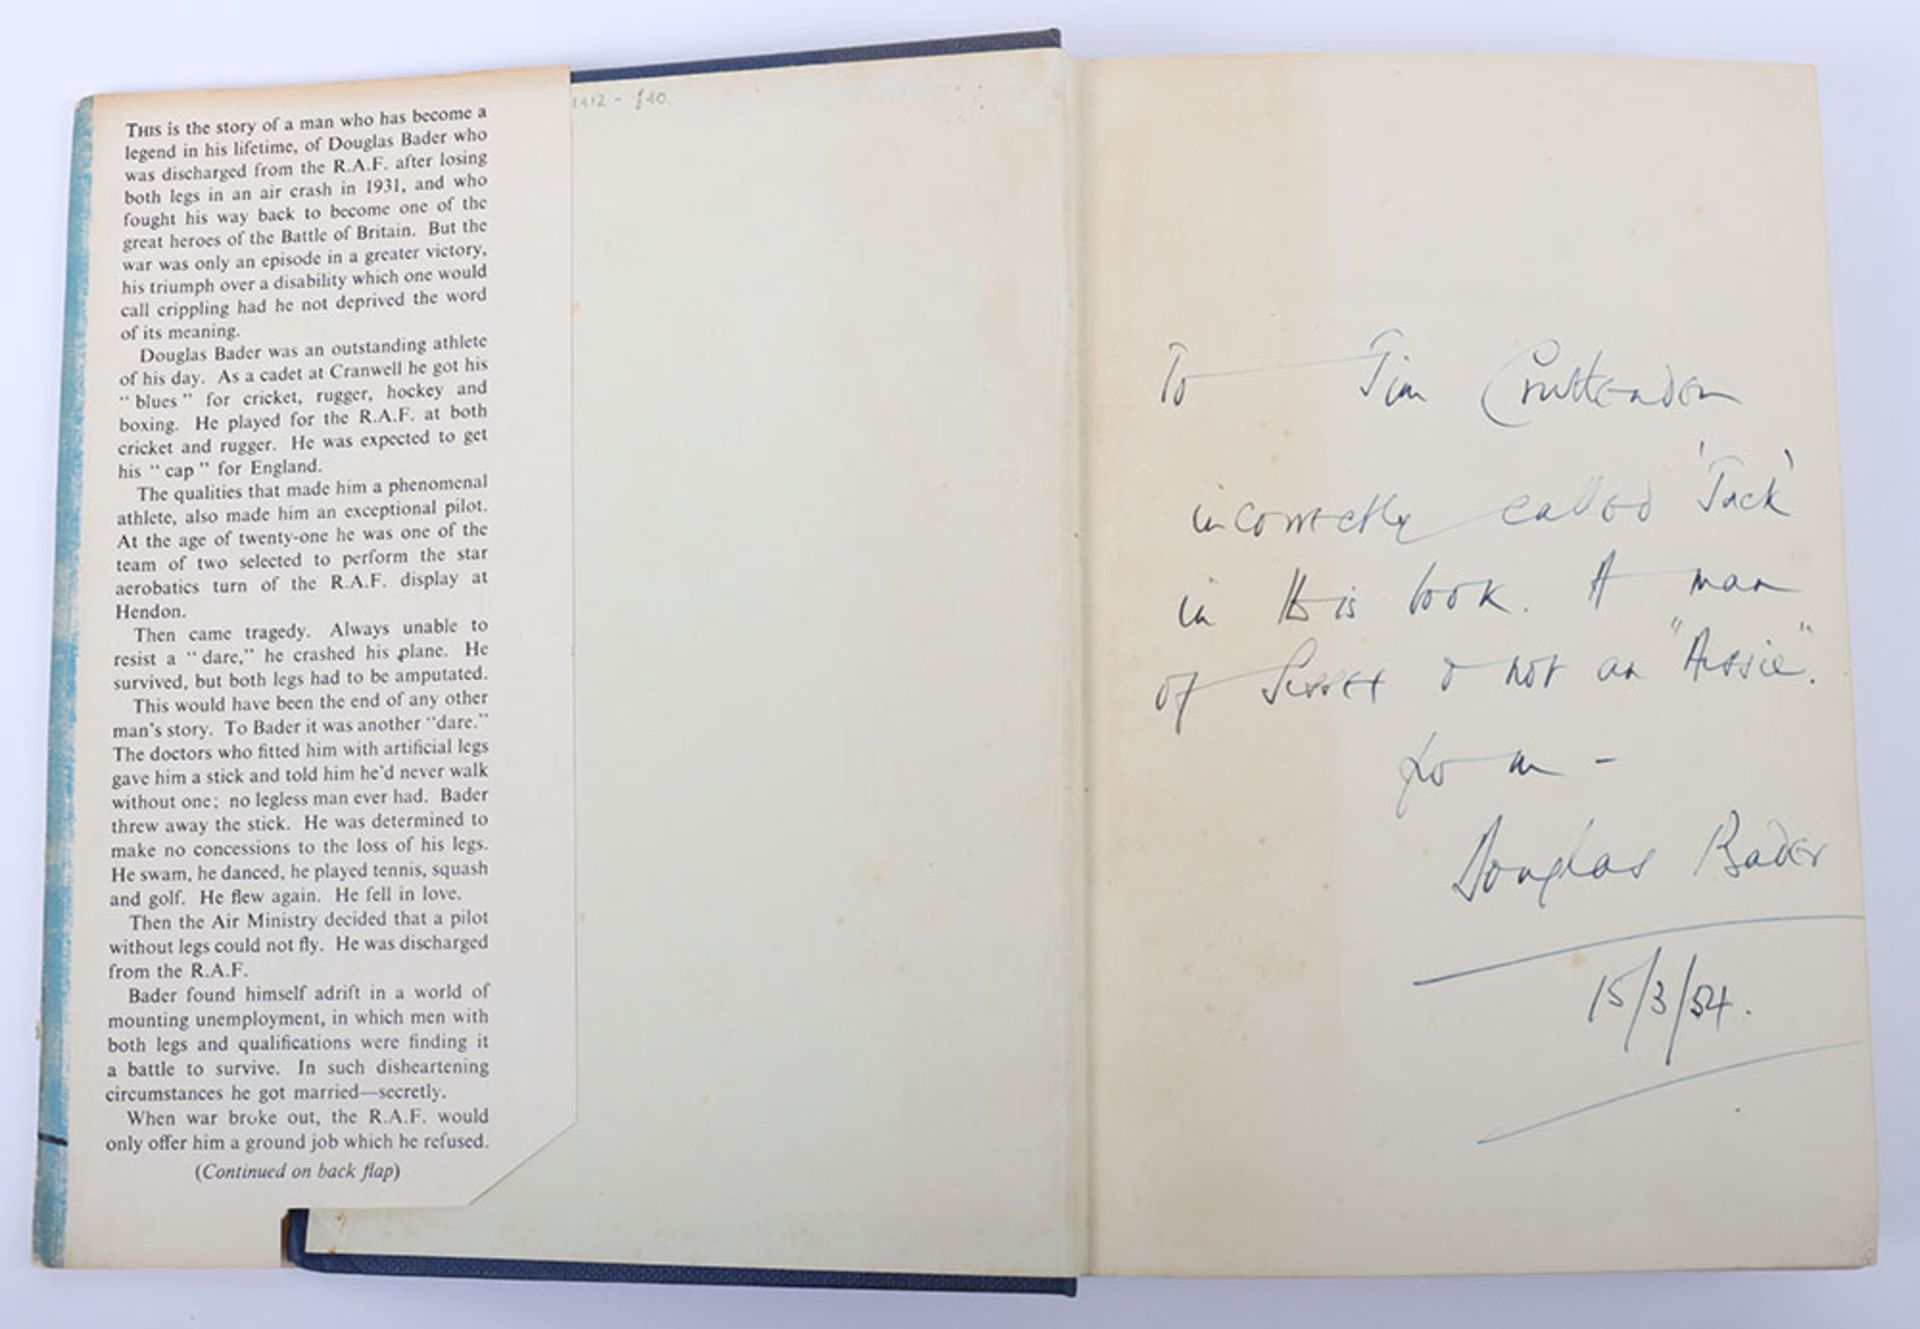 THIS is the story of a man who has become a
legend in his lifetime, of Douglas Bader who
was discharged from the R.A.F. after losing
both legs in an air crash in 1931, and who
fought his way back to become one of the
great heroes of the Battle of Britain. But the
war was only an episode in a greater victory,
his triumph over a disability which one would
call crippling had he not deprived the word
of its meaning.
Douglas Bader was an outstanding athlete
of his day. As a cadet at Cranwell he got his
“ blues ” for cricket, rugger, hockey and
boxing. He played for the R.A.F. at both
cricket and rugger. He was expected to get
his “ cap ” for England.
The qualities that made him a phenomenal
athlete, also made him an exceptional pilot.
At the age of twenty-one he was one of the
team of two selected to perform the star
aerobatics turn of the R.A.F. display at
Hendon.
Then came tragedy. Always unable to
resist a “ dare,” he crashed his plane. He
survived, but both legs had to be amputated.
This would have been the end of any other
man's story. To Bader it was another “dare.”
The doctors who fitted him with artificial legs
gave him a stick and told him he'd never walk
without one; no legless man ever had. Bader
threw away the stick. He was determined to
make no concessions to the loss of his legs.
He swam, he danced, he played tennis, squash
and golf. He flew again. He fell in love.
Then the Air Ministry decided that a pilot
without legs could not fly. He was discharged
from the R.A.F.
Bader found himself adrift in a world of
mounting unemployment, in which men with
both legs and qualifications were finding it
a battle to survive. In such disheartening
circumstances he got married—secretly.
When war broke out, the R.A.F. would
only offer him a ground job which he refused.
(Continued on back flap)
1412 - £40.
To Tim Cruttenden
incorrectly called 'Jack'
in this book. A man
of Sussex & not an "Aussie".
from -
Douglas Bader
15/3/54.